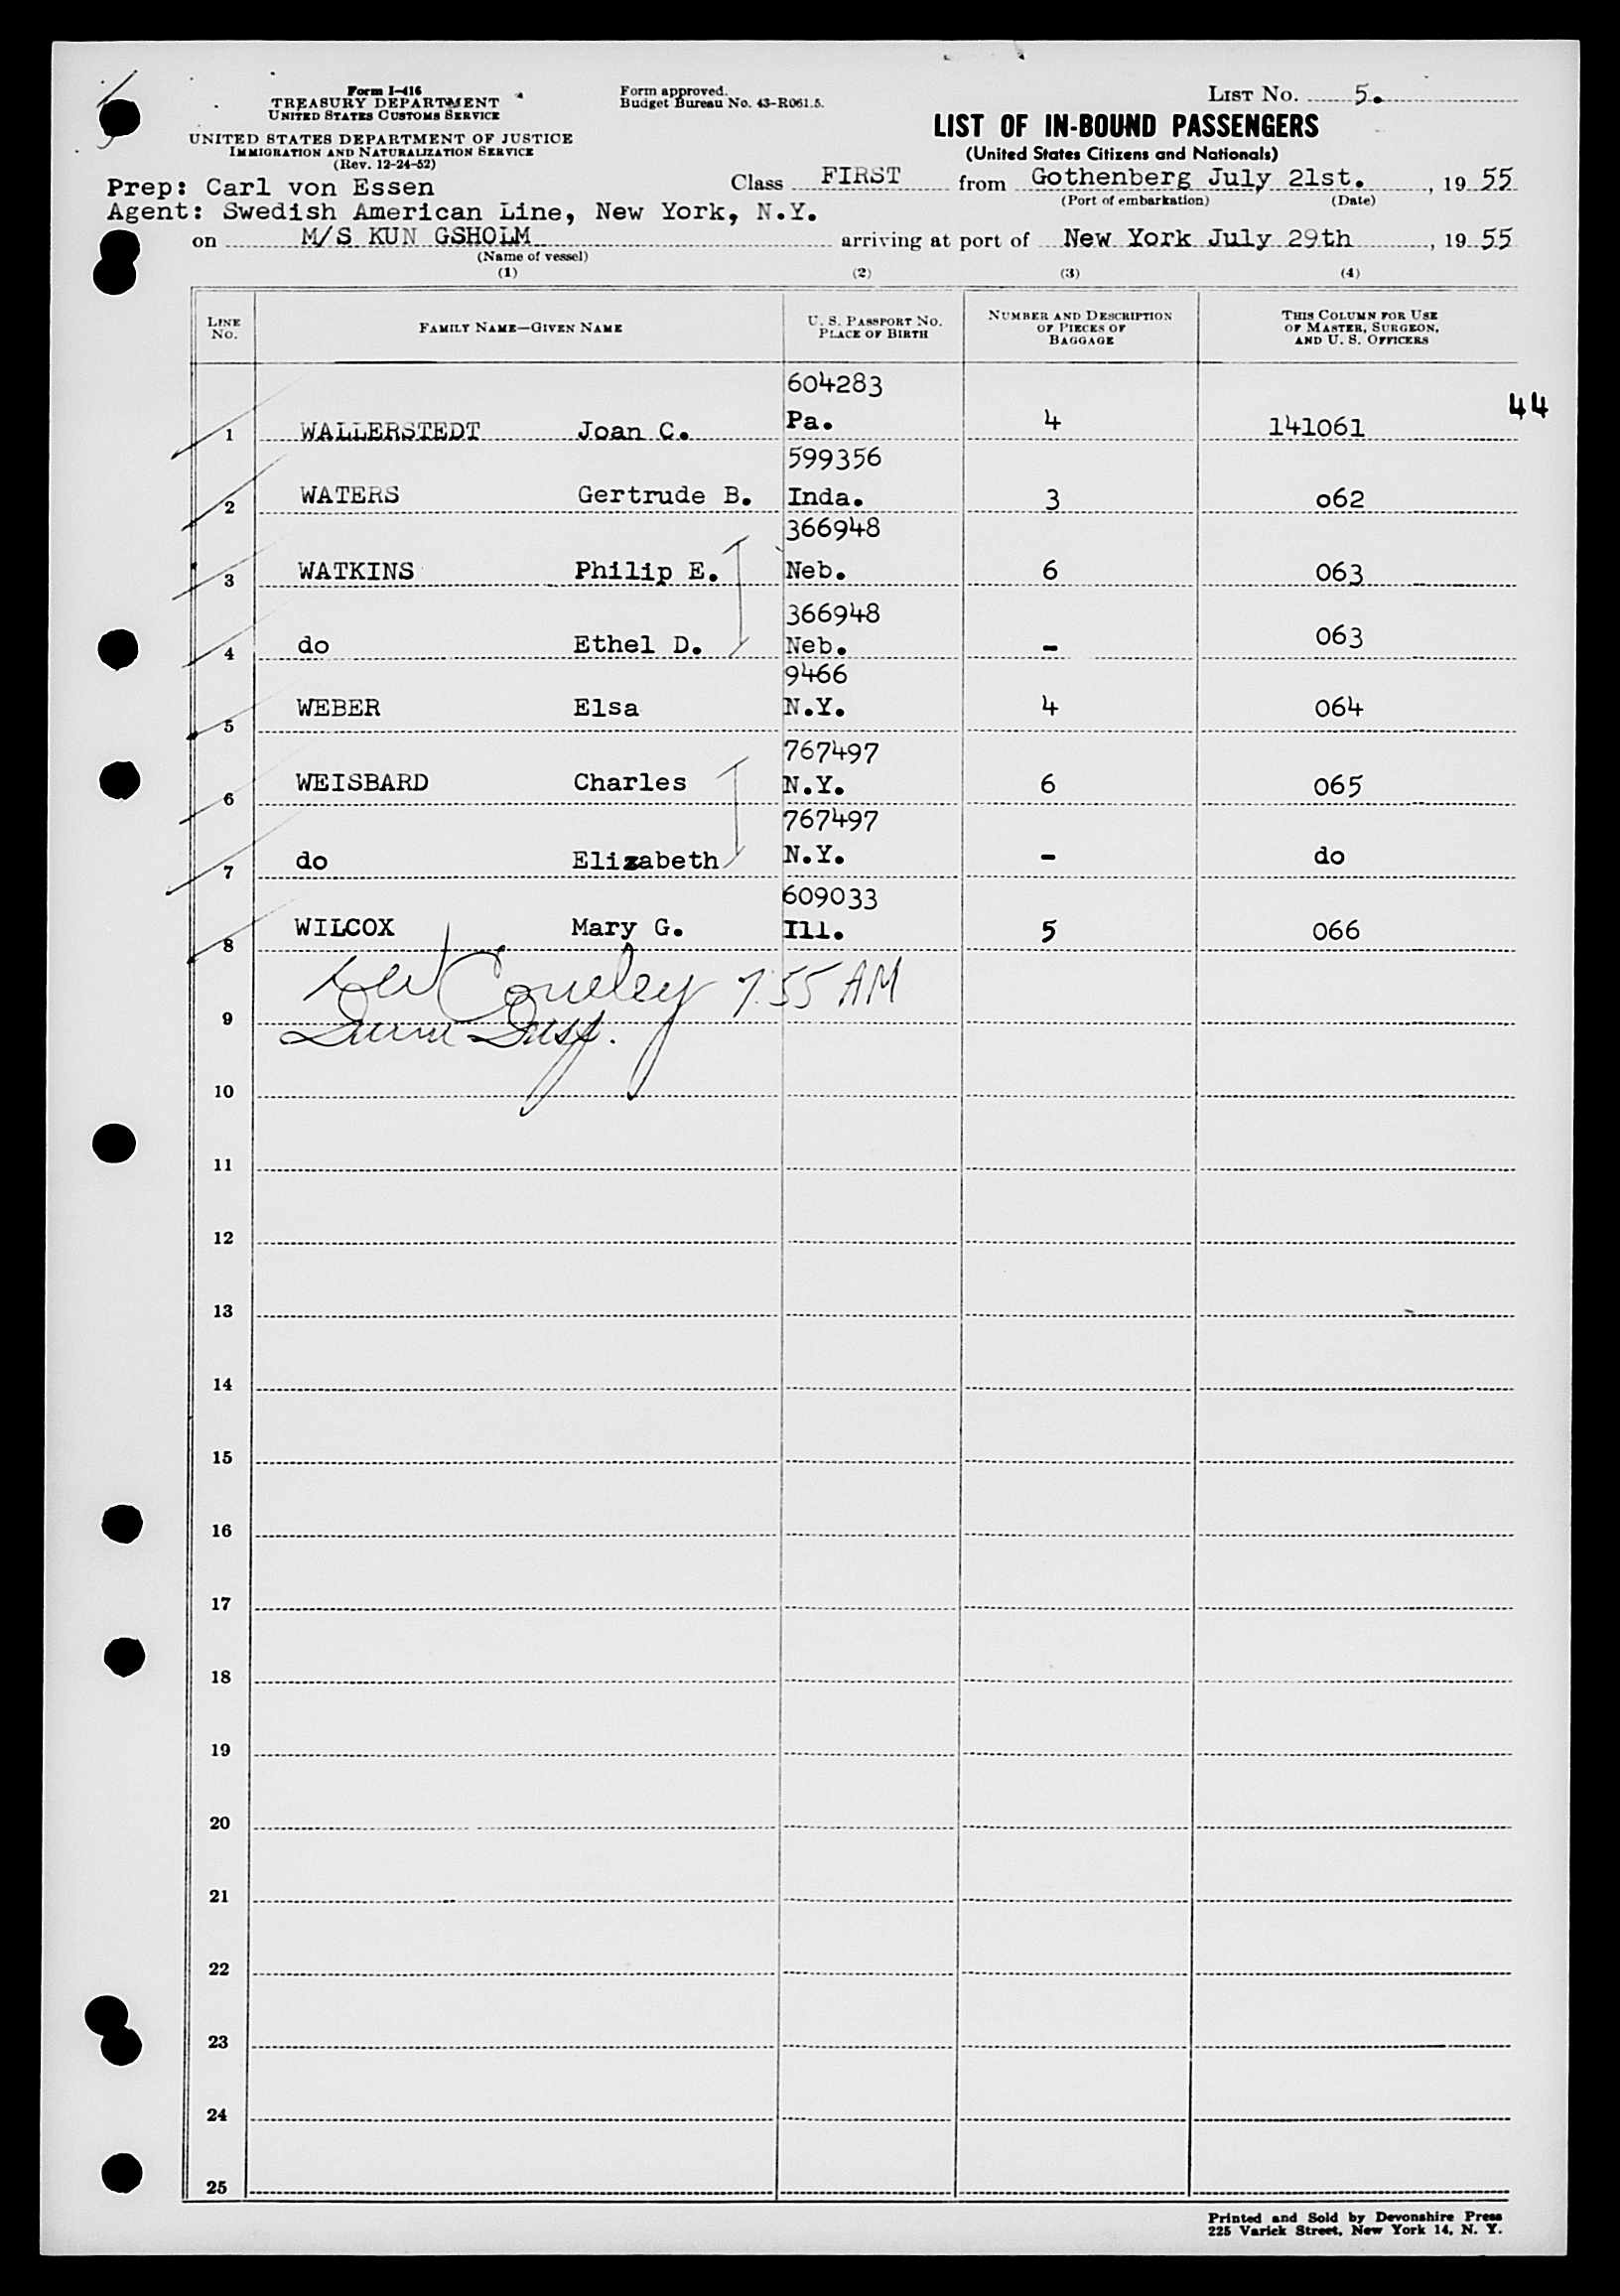 Form I-416
TREASURY DEPARTMENT
UNITED STATES CUSTOMS SERVICE
UNITED STATES DEPARTMENT OF JUSTICE
IMMIGRATION AND NATURALIZATION SERVICE
(Rev. 12-24-52)
Form approved.
Budget Bureau No. 43-R061.5.
LIST NO. 5.
LIST OF IN-BOUND PASSENGERS
(United States Citizens and Nationals)
Prep: Carl von Essen
Class FIRST from Gothenberg July 21st., 19 55
(Port of embarkation) (Date)
Agent: Swedish American Line, New York, N.Y.
on M/S KUN GSHOLM arriving at port of New York July 29th, 19 55
(Name of vessel)
(1) (2) (3) (4)
LINE NO. FAMILY NAME—GIVEN NAME U. S. PASSPORT NO. PLACE OF BIRTH NUMBER AND DESCRIPTION OF PIECES OF BAGGAGE THIS COLUMN FOR USE OF MASTER, SURGEON, AND U. S. OFFICERS
44
604283
1 WALLERSTEDT Joan C. Pa. 4 141061
599356
2 WATERS Gertrude B. Inda. 3 o62
366948
3 WATKINS Philip E. Neb. 6 063
366948
4 do Ethel D. Neb. - 063
9466
5 WEBER Elsa N.Y. 4 064
767497
6 WEISBARD Charles N.Y. 6 065
767497
7 do Elizabeth N.Y. - do
609033
8 WILCOX Mary G. Ill. 5 066
7:55 AM
9
10
11
12
13
14
15
16
17
18
19
20
21
22
23
24
25
Printed and Sold by Devonshire Press
225 Varick Street, New York 14, N. Y.